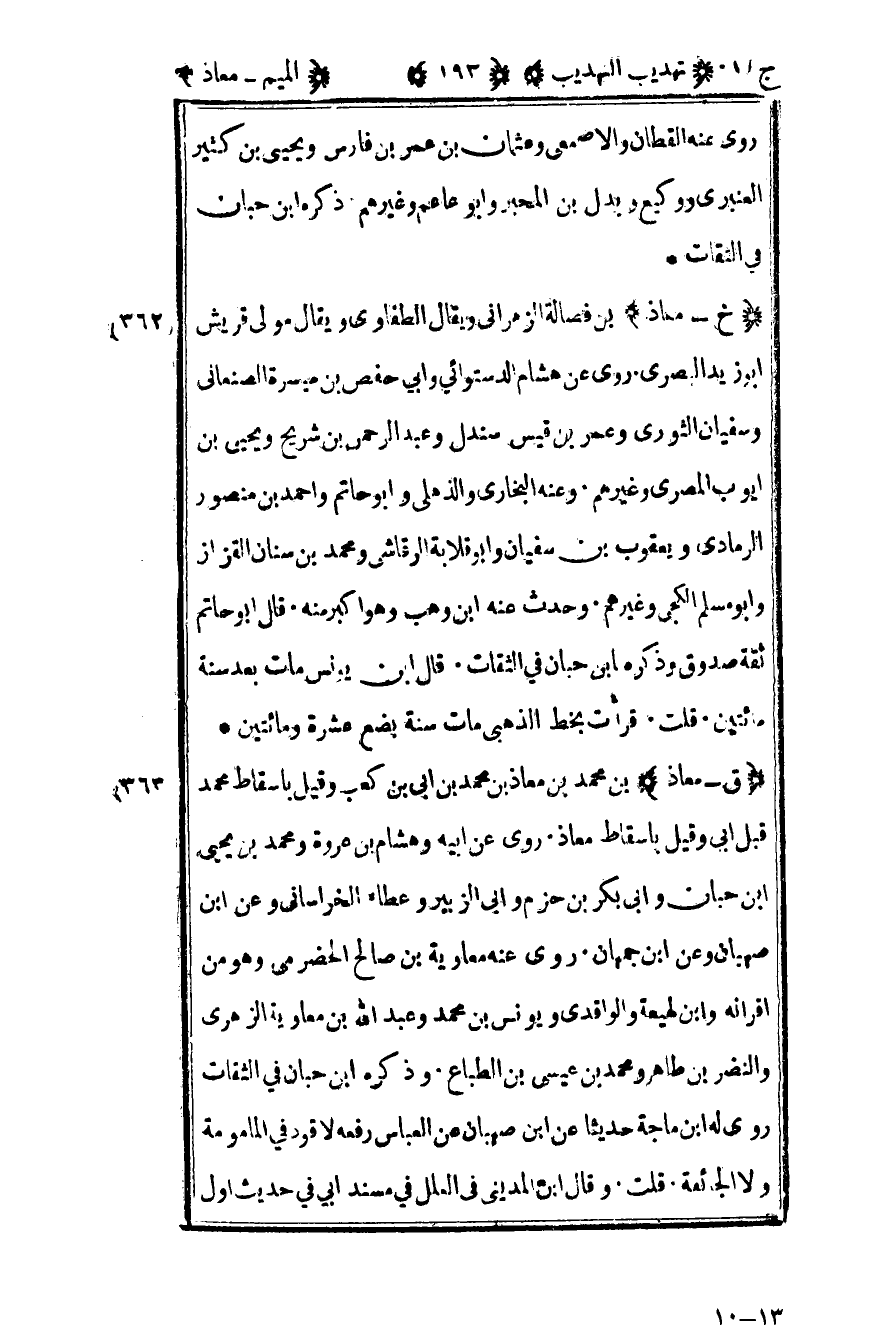 ج ١٠ ﴿ تهذيب التهذيب ﴾ ﴿ ١٩٣ ﴾ ﴿ الميم - معاذ ﴾
روى عنه القطان والاصمعى وعثمان بن عمر بن فارس ويحيى بن كثير
العنبرى ووكيع وبدل بن المحبر وابو عاصم وغيرهم. ذكره ابن حبان
في الثقات *
﴿ خ - معاذ ﴾ بن فضالة الزهرانى ويقال الطفاوى ويقال مولى قريش (٣٦٢)
ابو زيد البصرى. روى عن هشام الدستوائي وابي حفص بن ميسرة الصنعانى
وسفيان الثورى وعمر بن قيس سندل وعبد الرحمن بن شريح ويحيى بن
ايوب المصرى وغيرهم. وعنه البخارى والذهلى وابو حاتم واحمد بن منصور
الرمادى ويعقوب بن سفيان وابو قلابة الرقاشى ومحمد بن سنان القزاز
وابو مسلم الكجى وغيرهم. وحدث عنه ابن وهب وهو اكبر منه. قال ابو حاتم
ثقة صدوق وذكره ابن حبان في الثقات. قال ابن يونس مات بعد سنة
مائتين. قلت. قرأت بخط الذهبى مات سنة بضع عشرة ومائتين *
﴿ ق - معاذ ﴾ بن محمد بن معاذ بن محمد بن ابى بن كعب وقيل باسقاط محمد (٣٦٣)
قبل ابي وقيل باسقاط معاذ. روى عن ابيه وهشام بن عروة ومحمد بن يحيى
ابن حبان وابى بكر بن حزم وابى الزبير وعطاء الخراسانى وعن ابن
صهبان وعن ابن جمهان. روى عنه معاوية بن صالح الحضرمى وهو من
اقرانه وابن لهيعة والواقدى ويونس بن محمد وعبد الله بن معاوية الزهرى
والنضر بن طاهر ومحمد بن عيسى بن الطباع. وذكره ابن حبان في الثقات
روى له ابن ماجة حديثا عن ابن صهبان عن العباس رفعه لا قود في المامومة
ولا الجائفة. قلت. وقال ابن المدينى فى العلل في مسند ابي في حديث اول
١٣-١٠